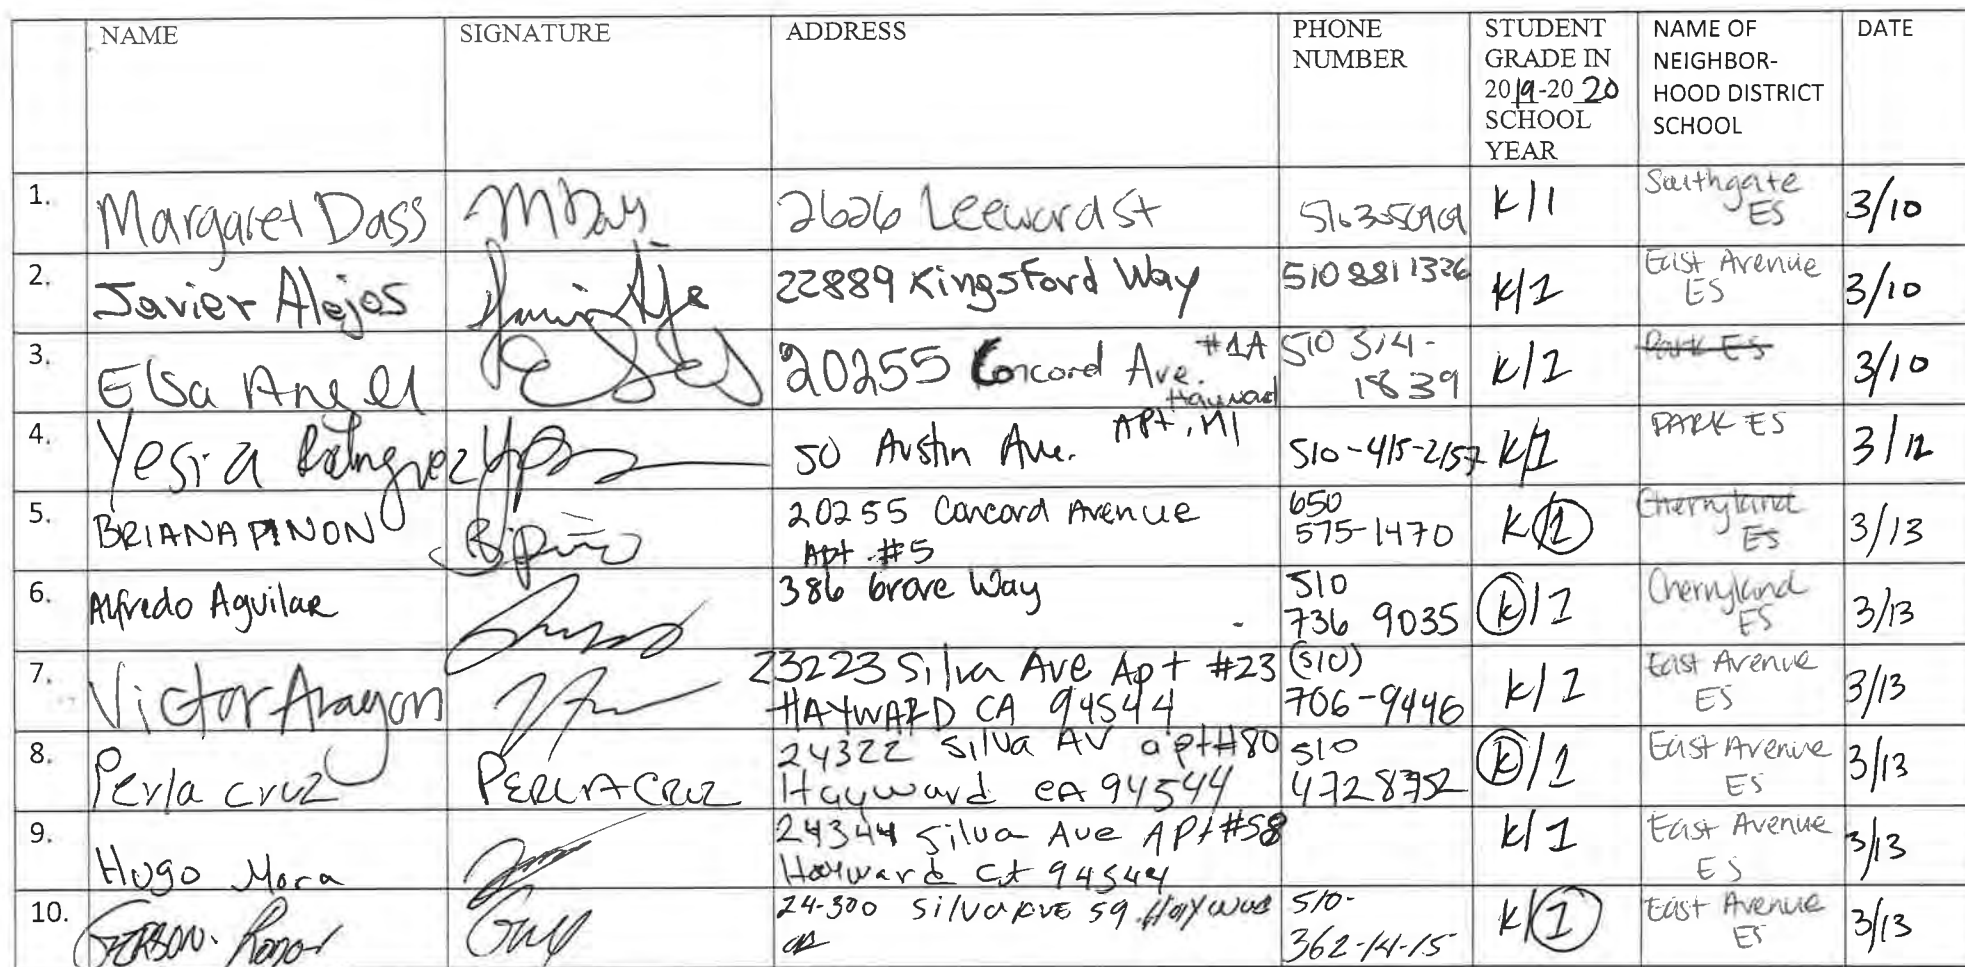 NAME SIGNATURE ADDRESS PHONE NUMBER STUDENT GRADE IN 2019-2020 SCHOOL YEAR NAME OF NEIGHBOR-HOOD DISTRICT SCHOOL DATE
1. Margaret Dass 2626 Leeward St K/1 Southgate ES 3/10
2. Javier Alejos 22889 Kingsford Way 510 881 1326 K/1 East Avenue ES 3/10
3. Elsa Angel 20255 Concord Ave. #1A Hayward 510 314-1839 K/1 Park ES 3/10
4. Yesi a Rodriguez 50 Austin Ave. APt, M1 510-415-2157 K/1 PARK ES 3/12
5. BRIANA PINON 20255 Concord Avenue Apt #5 650 575-1470 K/1 Cherryland ES 3/13
6. Alfredo Aguilar 386 Grove Way 510 736 9035 K/1 Cherryland ES 3/13
7. Victor Aragon 23223 Silva Ave Apt #23 HAYWARD CA 94544 (510) 706-9446 K/1 East Avenue ES 3/13
8. Perla cruz PERLA CRUZ 24322 Silva AV apt#80 Hayward CA 94544 510 472 8752 K/1 East Avenue ES 3/13
9. Hugo Mora 24344 Silva Ave APt #58 Hayward CA 94544 K/1 East Avenue ES 3/13
10. GERSON. 24-300 Silva AVE 59 Hayward CA 510-362-14-15 K/1 East Avenue ES 3/13